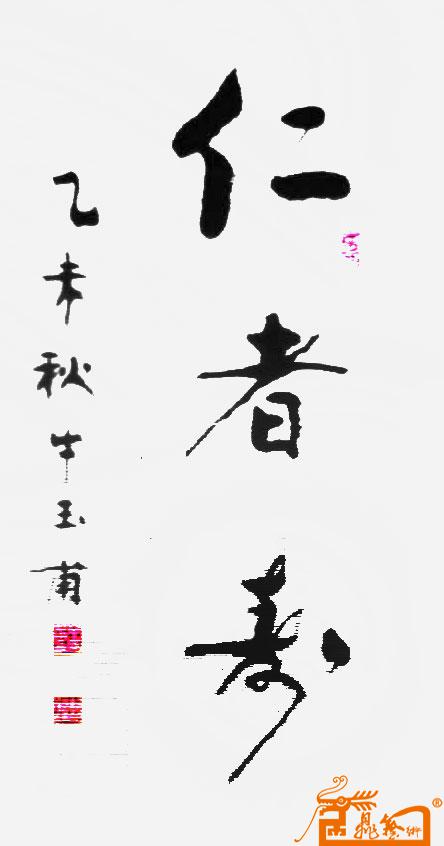 仁者寿
乙未秋牛玉甫